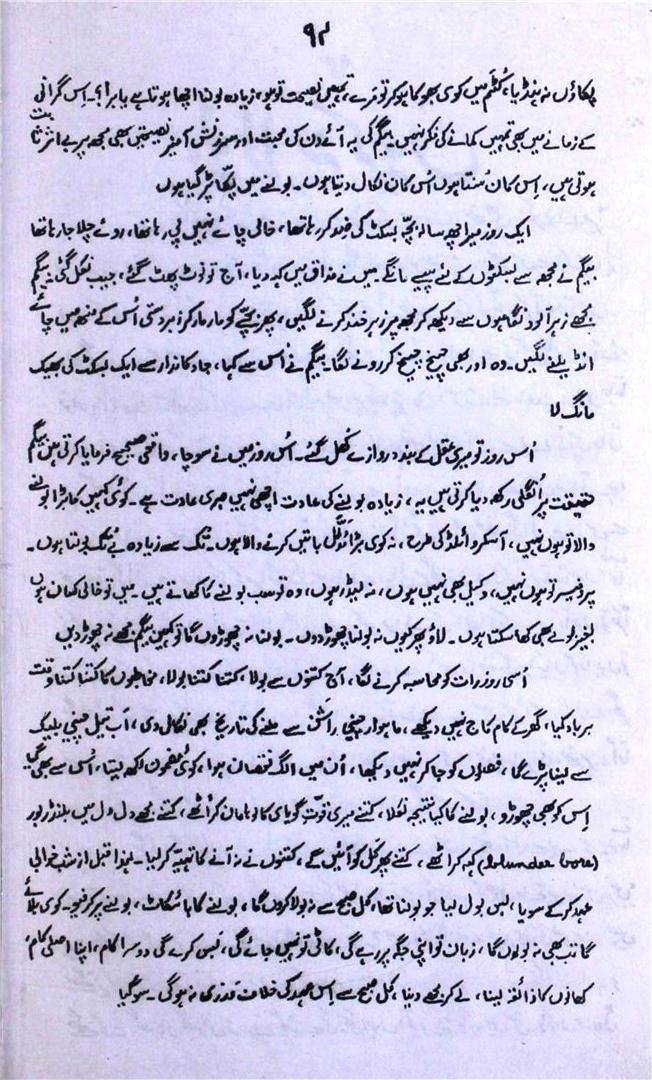 ۹۲
پکاؤں نہ ہنڈیا، کٹم میں کوئی بھوکا ہو کر تو مَرے، تمہیں نصیحت تو ہو، زیادہ بولنا اچھا ہوتا ہے یا برا؟۔ اِس گرانی
کے زمانے میں بھی تمہیں کمانے کی فکر نہیں۔ بیگم کی یہ آئے دن کی محبت اور سرزنش آمیز نصیحتیں بھی مجھ پر بے اثر ثابت
ہوتی ہیں، اِس کان سُنتا ہوں اُس کان نکال دیتا ہوں۔ بولنے میں پکّا پڑ گیا ہوں
ایک روز میرا چھ سالہ بچّہ بسکٹ کی ضد کر رہا تھا، خالی چائے نہیں پی رہا تھا، روئے چلا جا رہا تھا
بیگم نے مجھ سے بسکٹوں کے لئے پیسے مانگے۔ میں نے مذاق میں کہہ دیا، آج تو نوٹ پھٹ گئے، جیب نکل گئی۔ بیگم
مجھے زہر آلود نگاہوں سے دیکھ کر مجھ پر زہر خند کرنے لگیں، پھر بچّے کو مار مار کر زبردستی اُس کے منھ میں چائے
انڈیلنے لگیں۔ وہ اور بھی چیخ چیخ کر رونے لگا۔ بیگم نے اُس سے کہا، جا دکاندار سے ایک بسکٹ کی بھیک
مانگ لا
اُس روز تو میری عقل کے بند دروازے کھل گئے۔ اُس روز میں نے سوچا، واقعی صحیح فرمایا کرتی ہیں بیگم
حقیقت پر اُنگلی رکھ دیا کرتی ہیں یہ، زیادہ بولنے کی عادت اچھی نہیں میری عادت ہے۔ کوئی کہیں کا بڑا بولنے
والا تو ہوں نہیں، آسکر وائلڈ کی طرح، نہ کوئی بڑا مدلّل باتیں کرنے والا ہوں۔ تُک سے زیادہ بے تُک بولتا ہوں۔
پروفیسر تو ہوں نہیں، وکیل بھی نہیں ہوں، نہ لیڈر ہوں، وہ تو سب بولنے کا کھاتے ہیں۔ میں تو خالی کھان ہوں
بغیر بولے بھی کھا سکتا ہوں۔ لاؤ پھر کیوں نہ بولنا چھوڑ دوں۔ بولنا نہ چھوڑوں گا تو کہیں بیگم مجھے نہ چھوڑ دیں
اُسی روز رات کو محاسبہ کرنے لگا، آج کتنوں سے بولا، کتنا کتنا بولا، مخاطبوں کا کتنا کتنا وقت
برباد کیا، گھر کے کام کاج نہیں دیکھے، ماہوار چینی راشن سے ملنے کی تاریخ بھی نکال دی، اَب تبل چینی بلیک
سے لینا پڑے گا، فصلوں کو جا کر نہیں دیکھا، اُن میں الگ نقصان ہوا، کوئی مضمون لکھ لیتا، اُس سے بھی گیا
اِس کو بھی چھوڑو، بولنے کا کیا نتیجہ نکلا، کتنے میری قوّتِ گویائی کا لوہا مان کر اُٹھے، کتنے مجھے دل دل میں بلنڈر بور
(blunder bore) کہہ کر اٹھے، کتنے پھر کل کو آئیں گے، کتنوں نے نہ آنے کا تہیّہ کر لیا۔ لہٰذا قبل از شب خوابی
عہد کر کے سویا، بس بول لیا جو بولنا تھا، کل صبح سے نہ بولا کروں گا، بولنے کا بائیکاٹ، بولنے پر کرفیو۔ کوئی بلائے
گا تب بھی نہ بولوں گا، زبان تو اپنی جگہ پر رہے گی، کائی تو نہیں جائے گی، بس کرے گی دوسرا کام، اپنا اصلی کام،
کھانوں کا ذائقہ لینا، لے کر مجھے دینا، کل صبح سے اِس عہد کی خلاف ورزی نہ ہوگی۔ سو گیا